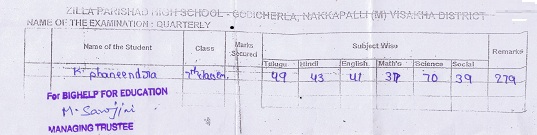 ZILLA PARISHAD HIGH SCHOOL - GODICHERLA, NAKKAPALLI (M) VISAKHA DISTRICT
NAME OF THE EXAMINATION : QUARTERLY
Name of the Student Class Marks Secured Subject Wise Remarks
Telugu Hindi English Math's Science Social
K. phaneendra 7th class 49 43 41 37 70 39 279
For BIGHELP FOR EDUCATION
M. Sarojini
MANAGING TRUSTEE